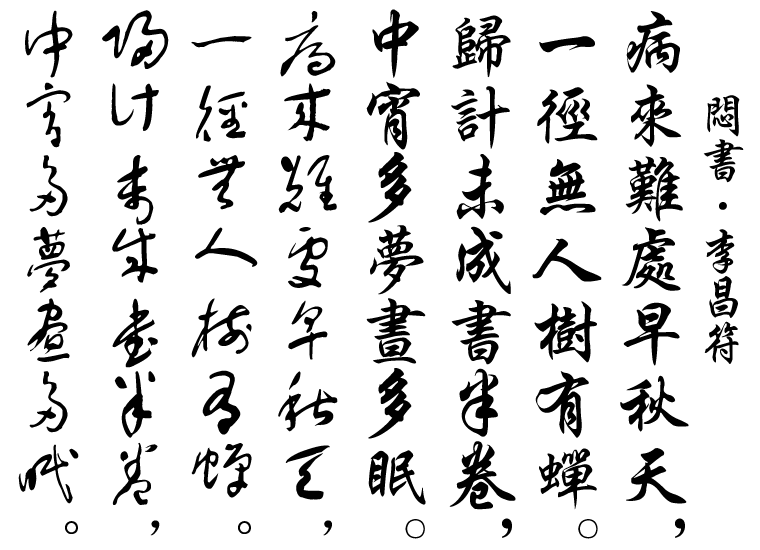 悶書·李昌符
病來難處早秋天，
一徑無人樹有蟬。
歸計未成書半卷，
中宵多夢晝多眠。
病來難處早秋天，
一徑無人樹有蟬。
歸計未成書半卷，
中宵多夢晝多眠。